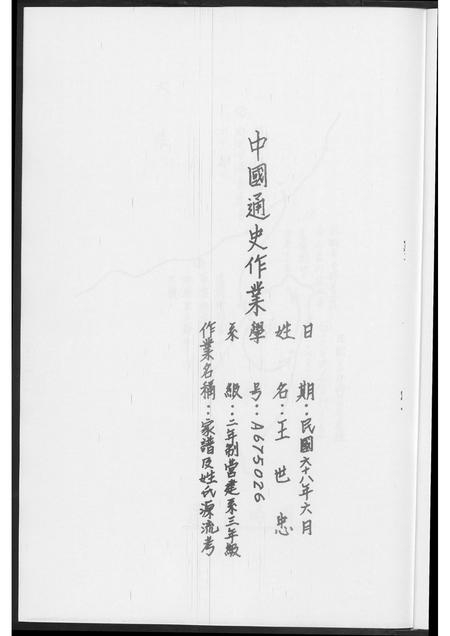 中國通史作業
日期：民國六十八年六月
姓名：王世忠
學号：A675026
系級：二年制營建系三年級
作業名稱：家譜及姓氏源流考